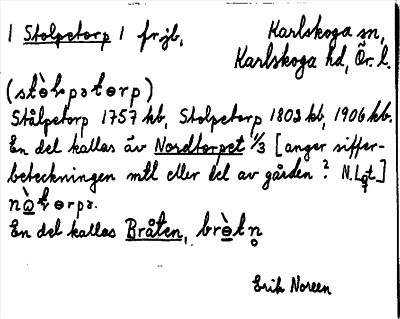 | Stolpetorp | frjb,
Karlskoga sn,
Karlskoga hd, Ör. l.
Stålpetorp 1757 kb, Stolpetorp 1803 kb, 1906 kb.
En del kallas äv Nordtorpet 1/3 [anger siffer-
beteckningen mtl eller del av gården? N.Lgt.]
En del kallas Bråten,
Erik Noreen